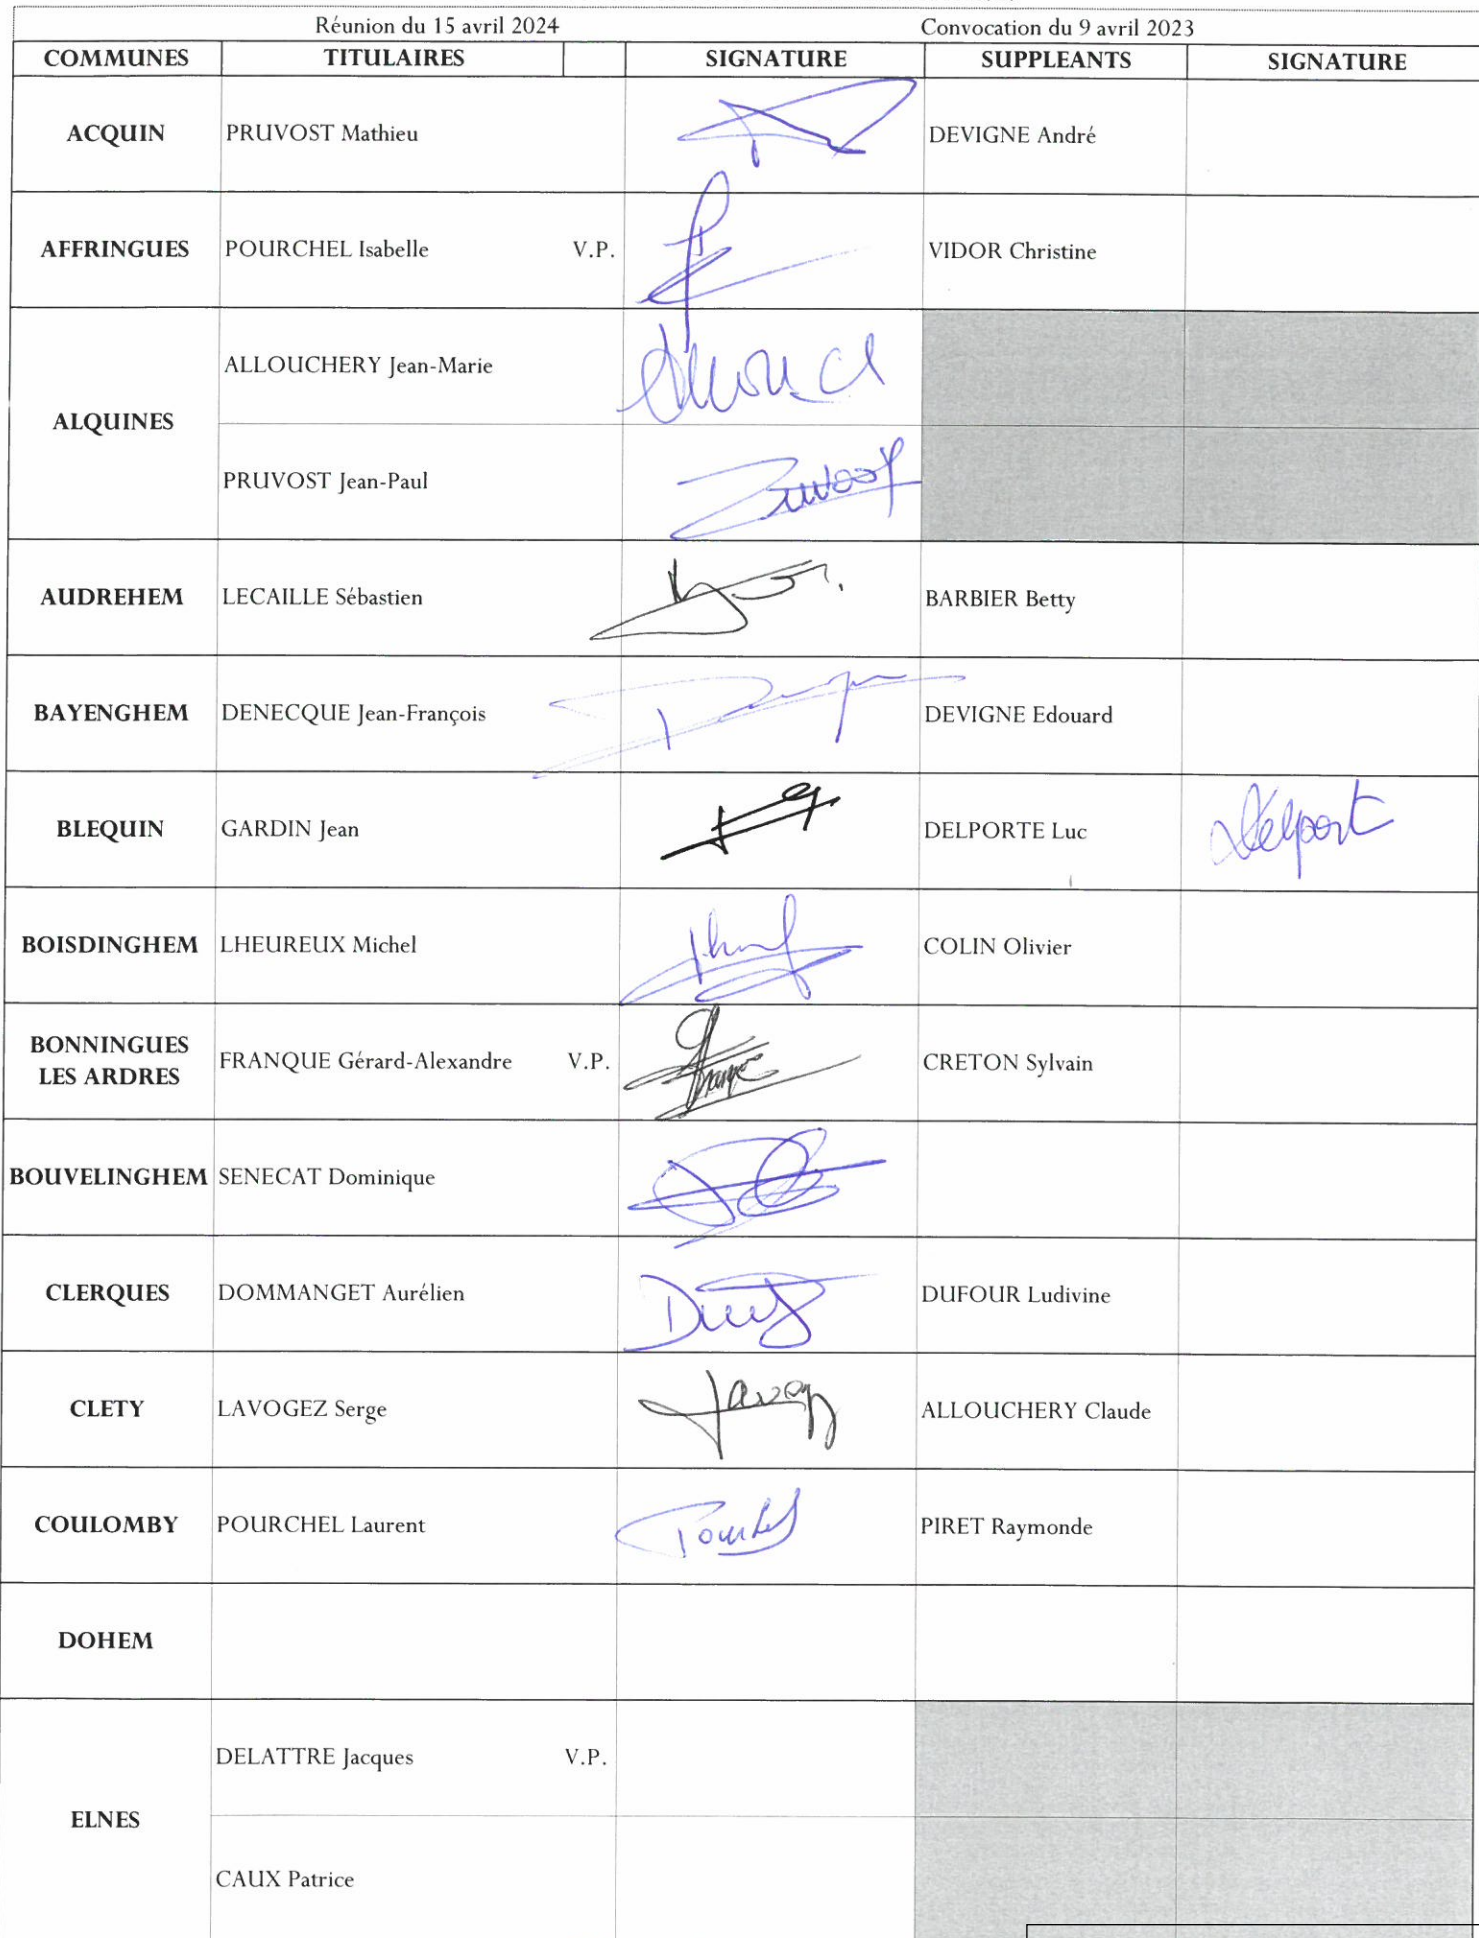 Réunion du 15 avril 2024 Convocation du 9 avril 2023
COMMUNES TITULAIRES SIGNATURE SUPPLEANTS SIGNATURE
ACQUIN PRUVOST Mathieu DEVIGNE André
AFFRINGUES POURCHEL Isabelle V.P. VIDOR Christine
ALQUINES
ALLOUCHERY Jean-Marie
PRUVOST Jean-Paul
AUDREHEM LECAILLE Sébastien BARBIER Betty
BAYENGHEM DENECQUE Jean-François DEVIGNE Edouard
BLEQUIN GARDIN Jean DELPORTE Luc Delport
BOISDINGHEM LHEUREUX Michel COLIN Olivier
BONNINGUES
LES ARDRES FRANQUE Gérard-Alexandre V.P. CRETON Sylvain
BOUVELINGHEM SENECAT Dominique
CLERQUES DOMMANGET Aurélien DUFOUR Ludivine
CLETY LAVOGEZ Serge ALLOUCHERY Claude
COULOMBY POURCHEL Laurent PIRET Raymonde
DOHEM
ELNES
DELATTRE Jacques V.P.
CAUX Patrice